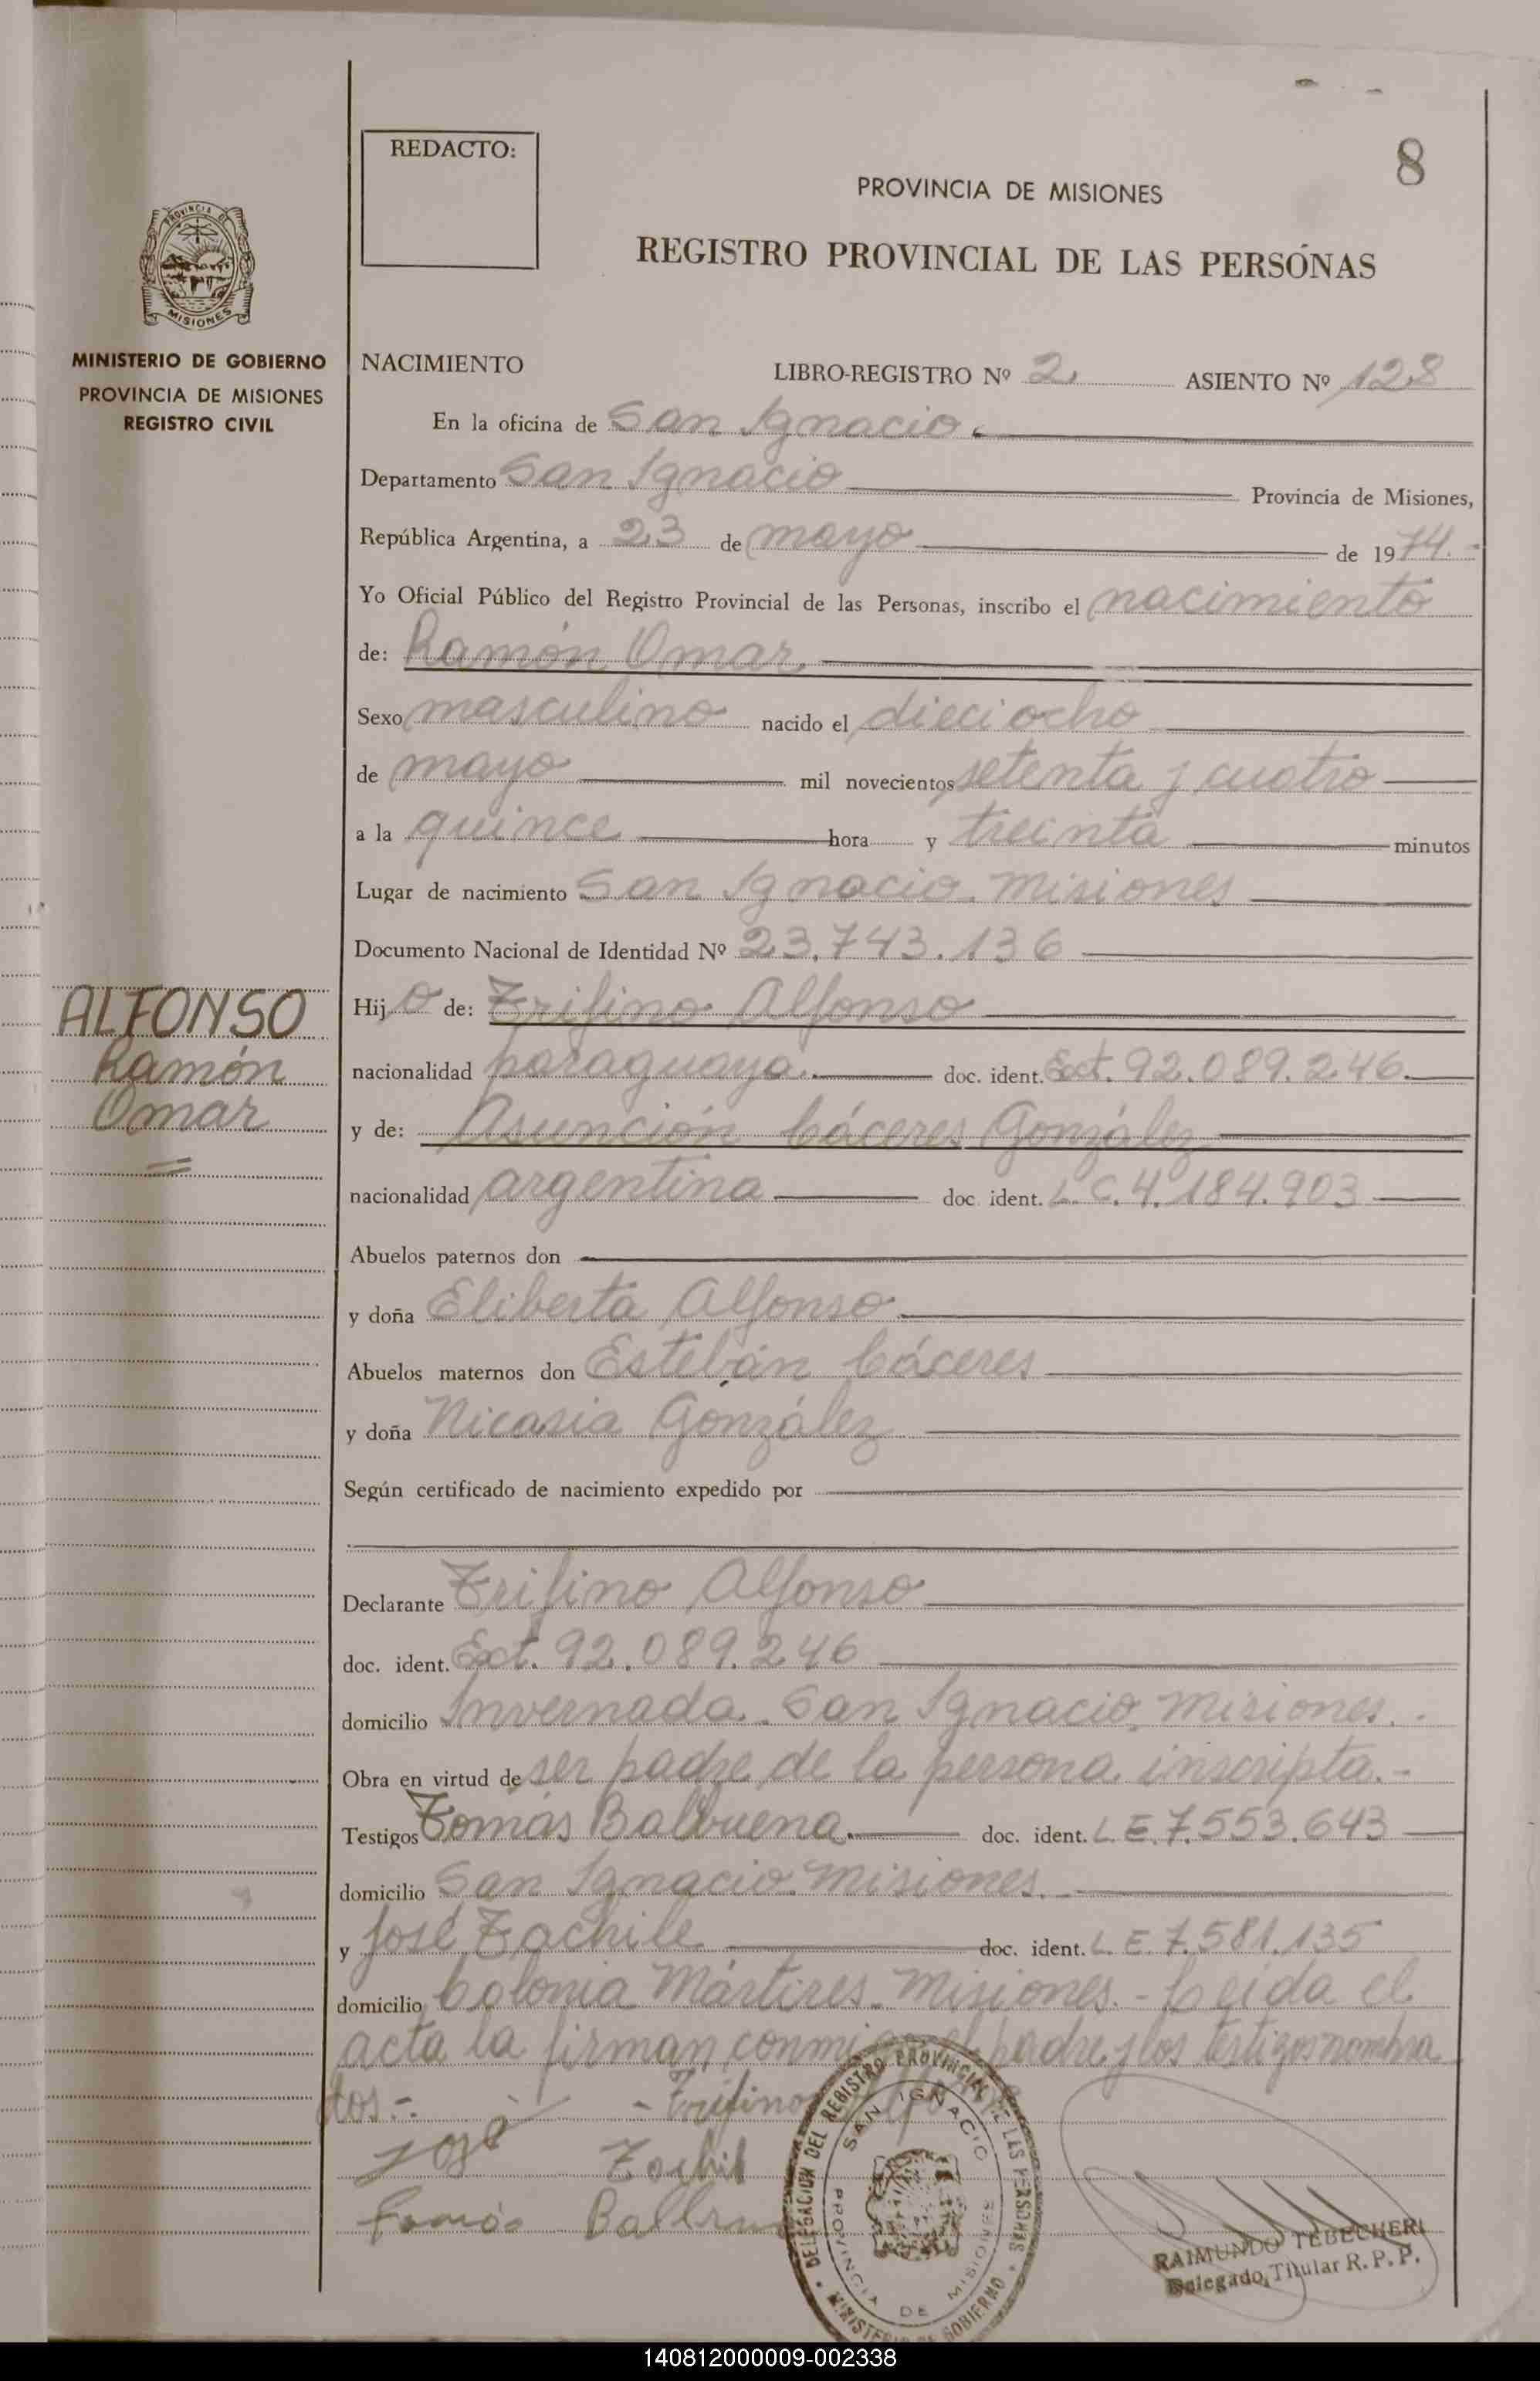 REDACTO:
8
PROVINCIA DE MISIONES
REGISTRO PROVINCIAL DE LAS PERSONAS
PROVINCIA DE
MISIONES
MINISTERIO DE GOBIERNO
PROVINCIA DE MISIONES
REGISTRO CIVIL
NACIMIENTO LIBRO-REGISTRO Nº 2 ASIENTO Nº 128
En la oficina de San Ignacio.
Departamento San Ignacio Provincia de Misiones,
República Argentina, a 23 de mayo de 1974.-
Yo Oficial Público del Registro Provincial de las Personas, inscribo el nacimiento
de: Ramón Omar
Sexo masculino nacido el dieciocho
de mayo mil novecientos setenta y cuatro
a la quince hora y treinta minutos
Lugar de nacimiento San Ignacio. Misiones
Documento Nacional de Identidad Nº 23.743.136
ALFONSO
Ramón
Omar
Hijo de: Trifino Alfonso
nacionalidad paraguaya. doc. ident. Ext. 92.089.246.
y de: Asunción Cáceres González
nacionalidad argentina doc. ident. L.C. 4.184.903
Abuelos paternos don
y doña Eliberta Alfonso
Abuelos maternos don Estebán Cáceres
y doña Nicasia González
Según certificado de nacimiento expedido por
Declarante Trifino Alfonso
doc. ident. Ext. 92.089.246
domicilio Invernada. San Ignacio, Misiones.-
Obra en virtud de ser padre de la persona inscripta.-
Testigos Tomás Balbuena. doc. ident. L.E. 7.553.643
domicilio San Ignacio. Misiones.
y José Zachile doc. ident. L.E. 7.581.135
domicilio Colonia Mártires. Misiones.- Leída el
acta la firman conmigo el padre y los testigos nombra
dos.-
- Trifino Alfonso
José Zochil
DELEGACION DEL REGISTRO PROVINCIAL DE LAS PERSONAS
SAN IGNACIO
PROVINCIA DE MISIONES
MINISTERIO DE GOBIERNO
RAIMUNDO TEBECHERI
Delegado Titular R.P.P.
140812000009-002338